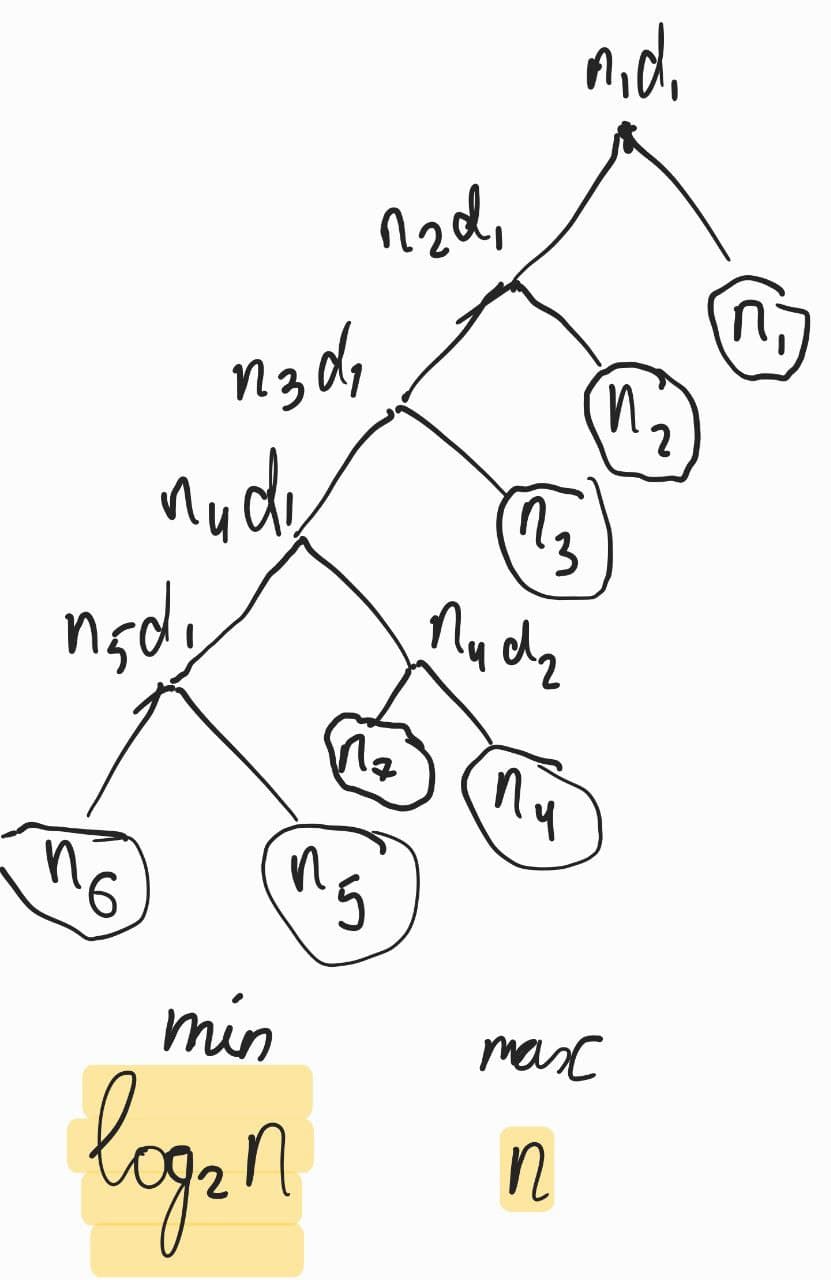 n₁d₁
n₂d₁
n₁
n₃d₁
n₂
n₄d₁
n₃
n₅d₁
n₄d₂
n₇
n₄
n₆
n₅
min
max
log₂n
n